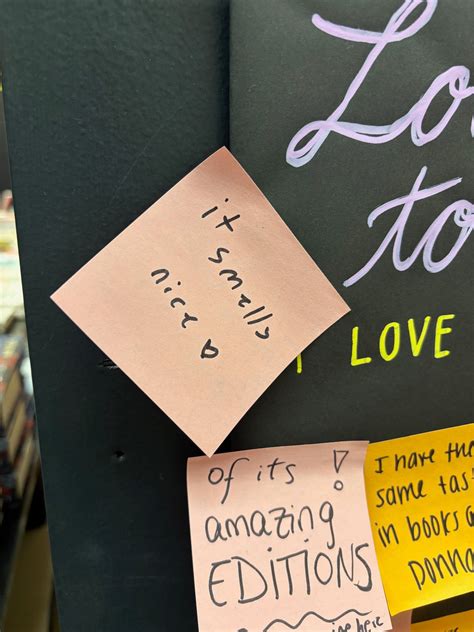 Lo
to
LOVE
it smells
nice ♡
of its !
amazing
EDITIONS
here
I have the
same tas
in books a
donna